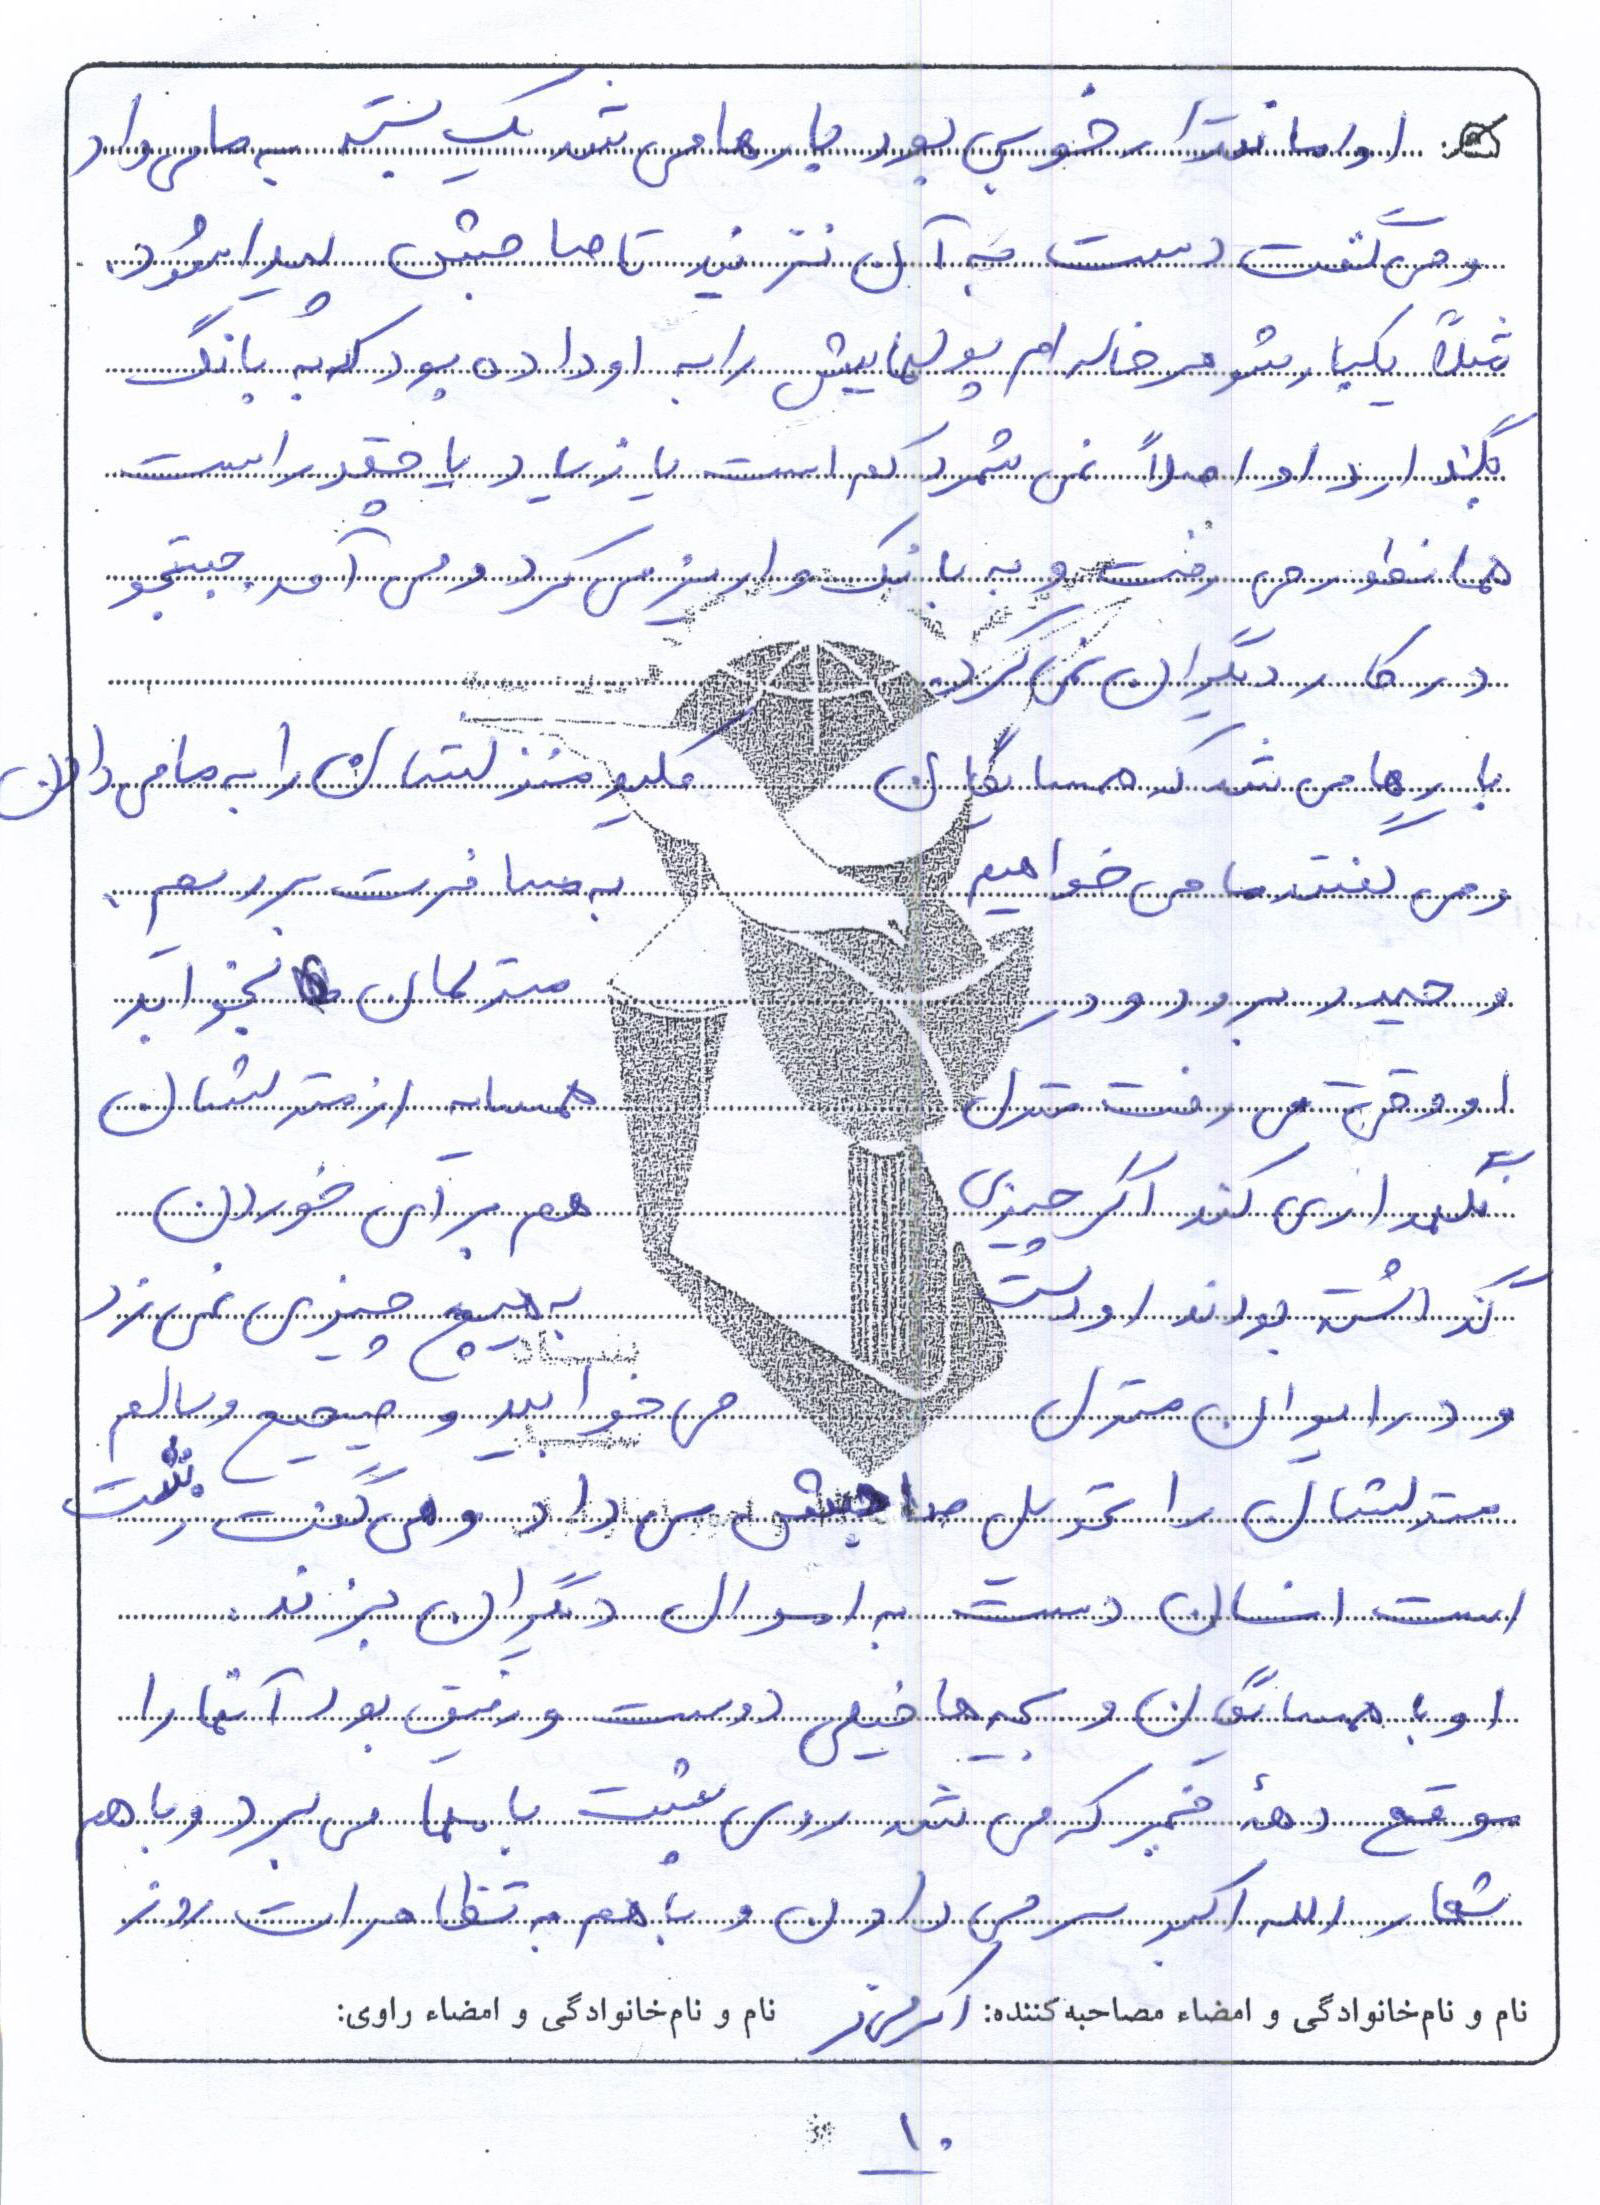 او امانتدار خوبی بود بارها می شد یک بسته به ما می داد
و می گفت دست به آن نزنید تا صاحبش پیدا شود.
مثلاً یکبار شوهر خاله ام پولهایش را به او داده بود که به بانک
بگذارد او اصلاً نمی شمرد کم است یا زیاد یا چقدر است
همانطور می رفت و به بانک واریز می کرد و می آمد. جستجو
در کار دیگران نمی کرد.
بارها می شد که همسایگان کلید منزلشان را به ما می دادن
و می گفتند ما می خواهیم به مسافرت برویم.
و حمید برود و در منزلمان بخوابد
او وقتی می رفت منزل همسایه از منزلشان
نگهداری کند اگر چیزی هم برای خوردن
گذاشته بودند او دست به هیچ چیزی نمی زد
و در ایوان منزل می خوابید و صحیح و سالم
منزلشان را تحویل صاحبش می داد و می گفت زشت
است انسان دست به اموال دیگران بزند.
او با همسایگان و بچه ها خیلی دوست و رفیق بود آنها را
موقع دههٔ فجر که می شد روی پشت بامها می برد و با هم
شعار الله اکبر سر می دادن و با هم به تظاهرات روز
نام و نام‌خانوادگی و امضاء مصاحبه‌کننده: نام و نام‌خانوادگی و امضاء راوی:
۱۰